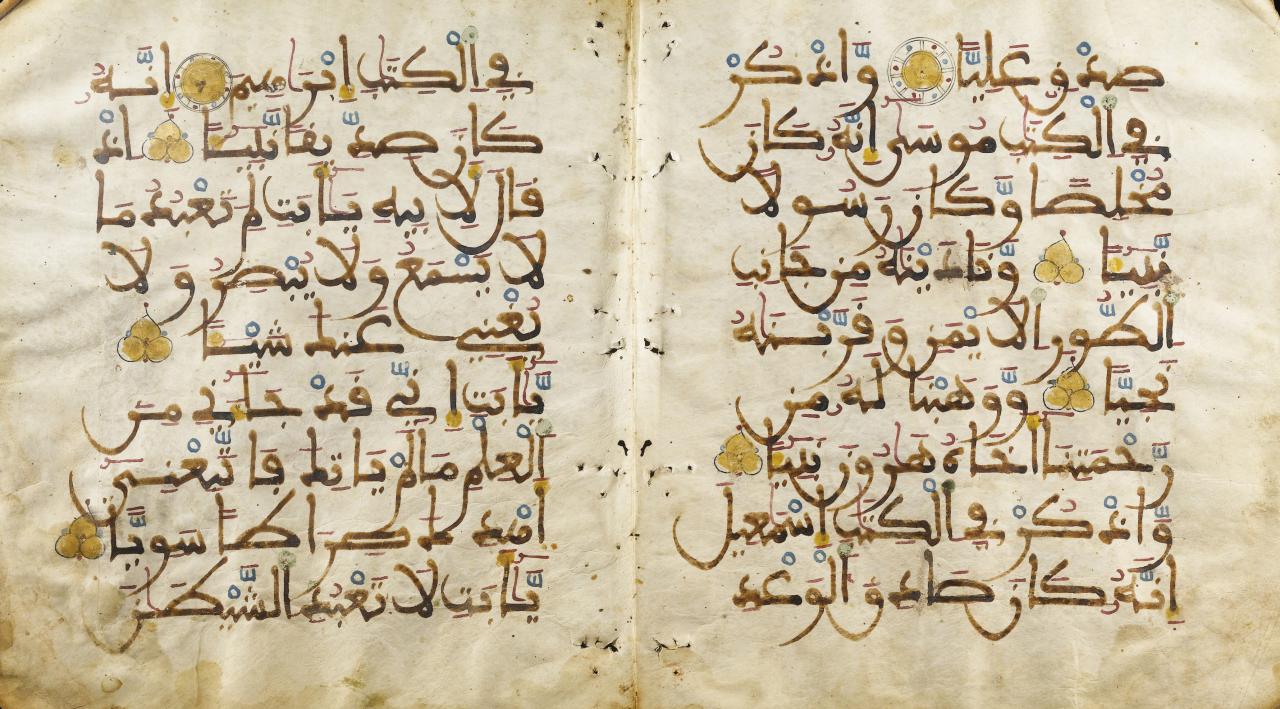 صِدْقٍ عَلِيًّا وَاذْكُرْ
فِي الْكِتَٰبِ مُوسَىٰ إِنَّهُ كَانَ
مُخْلِصًا وَكَانَ رَسُولًا
نَبِيًّا وَنَادَيْنَٰهُ مِن جَانِبِ
الطُّورِ الْأَيْمَنِ وَقَرَّبْنَٰهُ
نَجِيًّا وَوَهَبْنَا لَهُ مِن
رَّحْمَتِنَا أَخَاهُ هَٰرُونَ نَبِيًّا
وَاذْكُرْ فِي الْكِتَٰبِ إِسْمَٰعِيلَ
إِنَّهُ كَانَ صَادِقَ الْوَعْدِ
فِي الْكِتَٰبِ إِبْرَٰهِيمَ إِنَّهُ
كَانَ صِدِّيقًا نَّبِيًّا إِذْ
قَالَ لِأَبِيهِ يَا أَبَتِ لِمَ تَعْبُدُ مَا
لَا يَسْمَعُ وَلَا يُبْصِرُ وَلَا
يُغْنِي عَنكَ شَيْئًا
يَا أَبَتِ إِنِّي قَدْ جَاءَنِي مِنَ
الْعِلْمِ مَا لَمْ يَأْتِكَ فَاتَّبِعْنِي
أَهْدِكَ صِرَاطًا سَوِيًّا
يَا أَبَتِ لَا تَعْبُدِ الشَّيْطَٰنَ